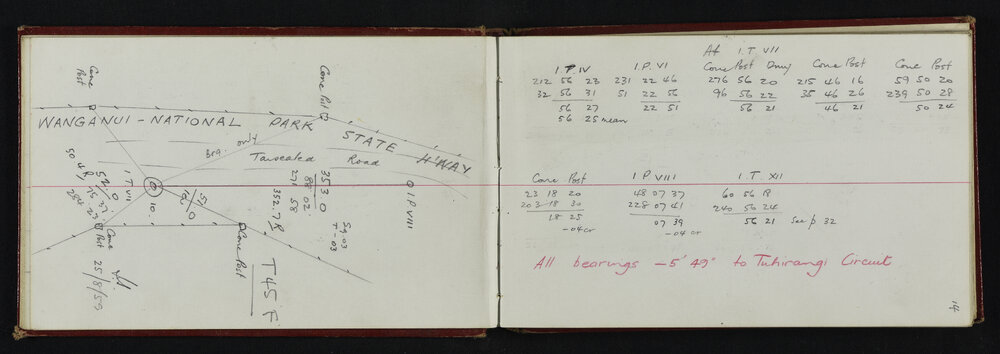 Conc Post
Conc Post
WANGANUI - NATIONAL PARK STATE H'WAY
brg. only
Tarsealed Road
I.T VII
10.
O I P VIII
353 0
88 02
271 58
352.7 R
59.03
T-03
Conc Post
Conc Post
T 45 F
25/8/59
At I.T. VII
I P IV
212 56 23
32 56 31
56 27
56 25 mean
I.P. VI
231 22 46
51 22 56
22 51
Conc Post Dmy
276 56 20
96 56 22
56 21
Conc Post
215 46 16
35 46 26
46 21
Conc Post
59 50 20
239 50 28
50 24
Conc Post
23 18 20
203 18 30
18 25
-04 cr
I P VIII
48 07 37
228 07 41
07 39
-04 cr
I.T. XII
60 56 18
240 56 24
56 21 See p 32
All bearings - 5' 49" to Tuhirangi Circuit
14